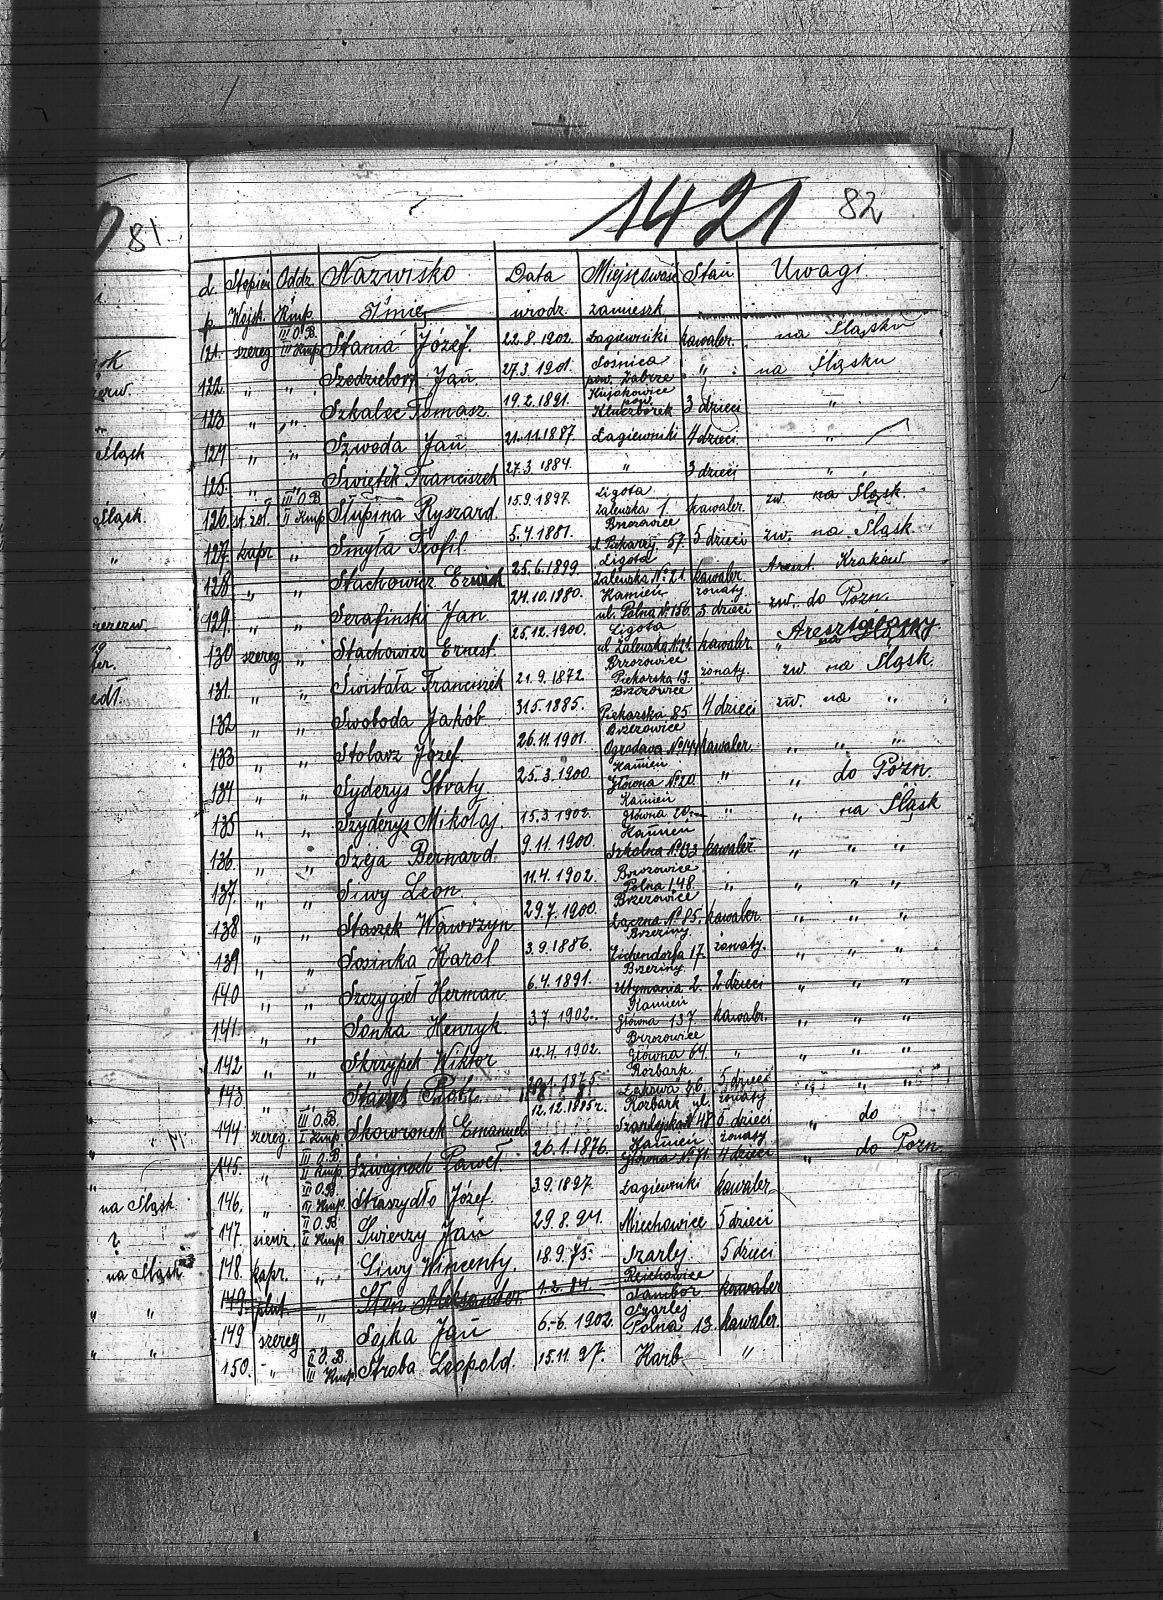 1421 82
81
L. Stopień Oddz. Nazwisko Data Miejscowość Stan Uwagi
p. Wojsk. Kmp. Imię urodz. zamieszk.
121. szereg III O.B. III Kmp. Stania Józef. 22.8.1902. Łagiewniki kawaler. na Śląsku
122. " " Jan 27.3.1901. Sośnica pow. Zabrze " na Śląsku
123 " " Szkalec Tomasz 19.2.1891. Kujakowice pow. Kluczborek 3 dzieci "
124 " " Szwoda Jan 21.11.1887. Łagiewniki 4 dzieci "
125. " " Świętek Franciszek 27.3.1884. " 3 dzieci "
126. st. żoł III O.B. II Kmp Słupina Ryszard. 15.9.1897. Ligota Zalewska 1. kawaler. zw. na Śląsk
127. kapr " Smyła Teofil. 5.4.1881. Brzozowice ul Piekarsk. 57. 5 dzieci zw. na Śląsk.
128. " " Stachowicz 25.6.1899. Ligota Zalewska No 21. kawaler. Areszt. Kraków.
129. " " Serafinski Jan 24.10.1880. Kamień ul. Polna No 136. żonaty. 3 dzieci zw. do Pozn.
130 szereg " Stachowicz Ernest. 25.12.1900. Ligota ul Zalewska No 21. kawaler
131. " " Świstała Franciszek 21.9.1872. Brzozowice Piekarska 13. żonaty. zw. na Śląsk.
132 " " Swoboda Jakób 31.5.1885. Brzozowice Piekarska 85. 4 dzieci zw. na "
133 " " Stolarz Józef. 26.11.1901. Brzozowice Ogrodowa No 14 kawaler. " " "
134 " " Syderys 25.3.1900. Kamień Główna No 20. " " do Pozn.
135 " " Szyderys Mikołaj. 15.3.1902. Kamień Główna 20. " " na Śląsk
136. " " Szeja Bernard. 9.11.1900. Kamień Szkolna No 133 kawaler. " " "
137. " " Siwy Leon 11.4.1902. Brzozowice Polna 148. " " " "
138 " " Staszek Wawrzyn 29.7.1900. Brzozowice Łączna No 85. kawaler. " " "
139 " " Sosinka Karol 3.9.1886. Brzeziny. Eichendorfa 17. żonaty. " " "
140 " " Szczygieł Herman. 6.4.1891. Brzeziny 2. 2 dzieci " " "
141. " " Sonka Henryk. 3.7.1902. Kamień Główna 137 kawaler. " " "
142 " " Skrzypek Wiktor 12.4.1902. Brzozowice Główna 64. " " " "
143 " 1875. Rozbark Łąkowa 5 dzieci " " "
144 szereg III O.B. I Kmp Skowronek Emanuel 12.12.1885 r. Rozbark ul. No 48 żonaty 5 dzieci " do
145. " III O.B. II Kmp Paweł 26.1.1876. Kamień Główna No 71. żonaty 4 dzieci " do Pozn.
146. " II O.B. III Kmp. Straszydło Józef. 3.9.1897. Łagiewniki kawaler
147. sierż. II O.B. II Kmp Świerzy Jan 29.8.94. Miechowice 5 dzieci
148. kapr. " Siwy Wincenty. 18.9.75. Szarlej. 5 dzieci
149. plut. " Sten Aleksander. 1.2.84. Sambor kawaler
149 szereg Sojka Jan 6.6.1902. Szarlej Polna 13. kawaler.
150. " II O.B. III Kmp Stroba Leopold. 15.11.97. Karb "
Śląsk
Śląsk.
"
na Śląsk.
?
na Śląsk
" "
" "